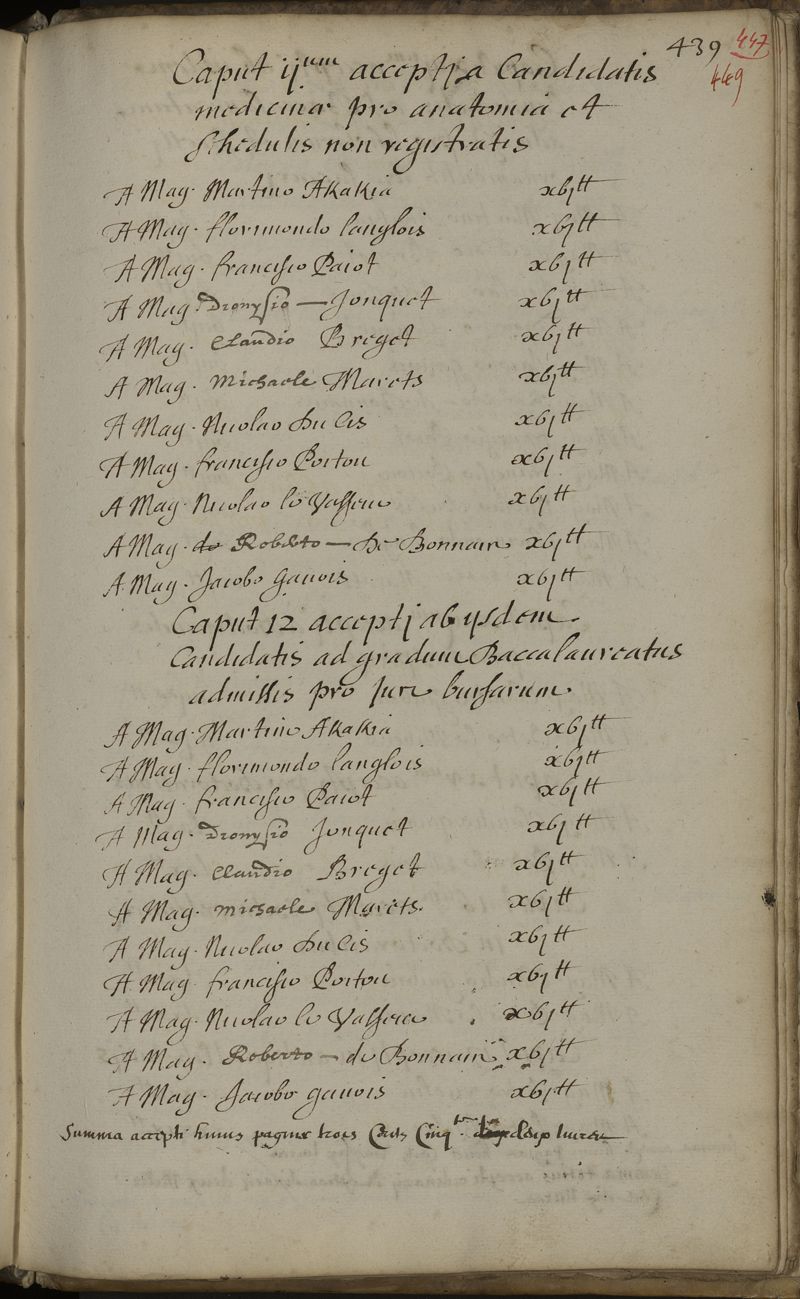 439 447
449
Caput ijum acceptj a Candidatis
medicinæ pro anatomia et
schedulis non registratis
A Mag. Martino Akakia xbjtt
A Mag. florimondo langlois xbjtt
A Mag. francisco Paiot xbjtt
A Mag. Dionysio — Jonquet xbjtt
A Mag. Claudio Breget xbjtt
A Mag. Michaele Marets xbjtt
A Mag. Nicolao Du Cis xbjtt
A Mag. francisco Poitou xbjtt
A Mag. Nicolao le Vasseur xbjtt
A Mag. de Roberto — De Bonnair xbjtt
A Mag. Jacobo gauois xbjtt
Caput 12 acceptj ab ijsdem
Candidatis ad gradum Baccalaureatus
admissis pro Jure bursarum.
A Mag. Martino Akakia xbjtt
A Mag. florimondo langlois xbjtt
A Mag. francisco Paiot xbjtt
A Mag. Dionysio Jonquet xbjtt
A Mag. Claudio Breget xbjtt
A Mag. michaele Marets. xbjtt
A Mag. Nicolao Du Cis xbjtt
A Mag. francisco Poitou xbjtt
A Mag. Nicolao le Vasseur xbjtt
A Mag. Roberto — de Bonnair xbjtt
A Mag. Jacobo gauois xbjtt
Summa accepti huius paginæ trois Cents Cinqte deux liures